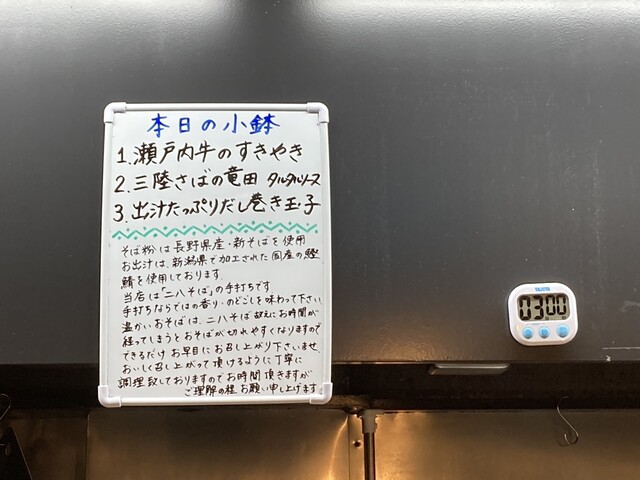 本日の小鉢
1.瀬戸内牛のすきやき
2.三陸さばの竜田 タルタルソース
3.出汁たっぷりだし巻き玉子
そば粉は長野県産・新そばを使用
お出汁は、新潟県で加工された国産の鰹
鯖を使用しております。
当店は「二八そば」の手打ちです
手打ちならではの香り・のどごしを味わって下さい
温かいおそばは、二八そば故にお時間が
経ってしまうとおそばが切れやすくなりますので
できるだけお早目にお召し上がり下さいませ
おいしく召し上がって頂けるように丁寧に
調理致しておりますのでお時間頂きますが
ご理解の程お願い申し上げます
TANITA
03 00